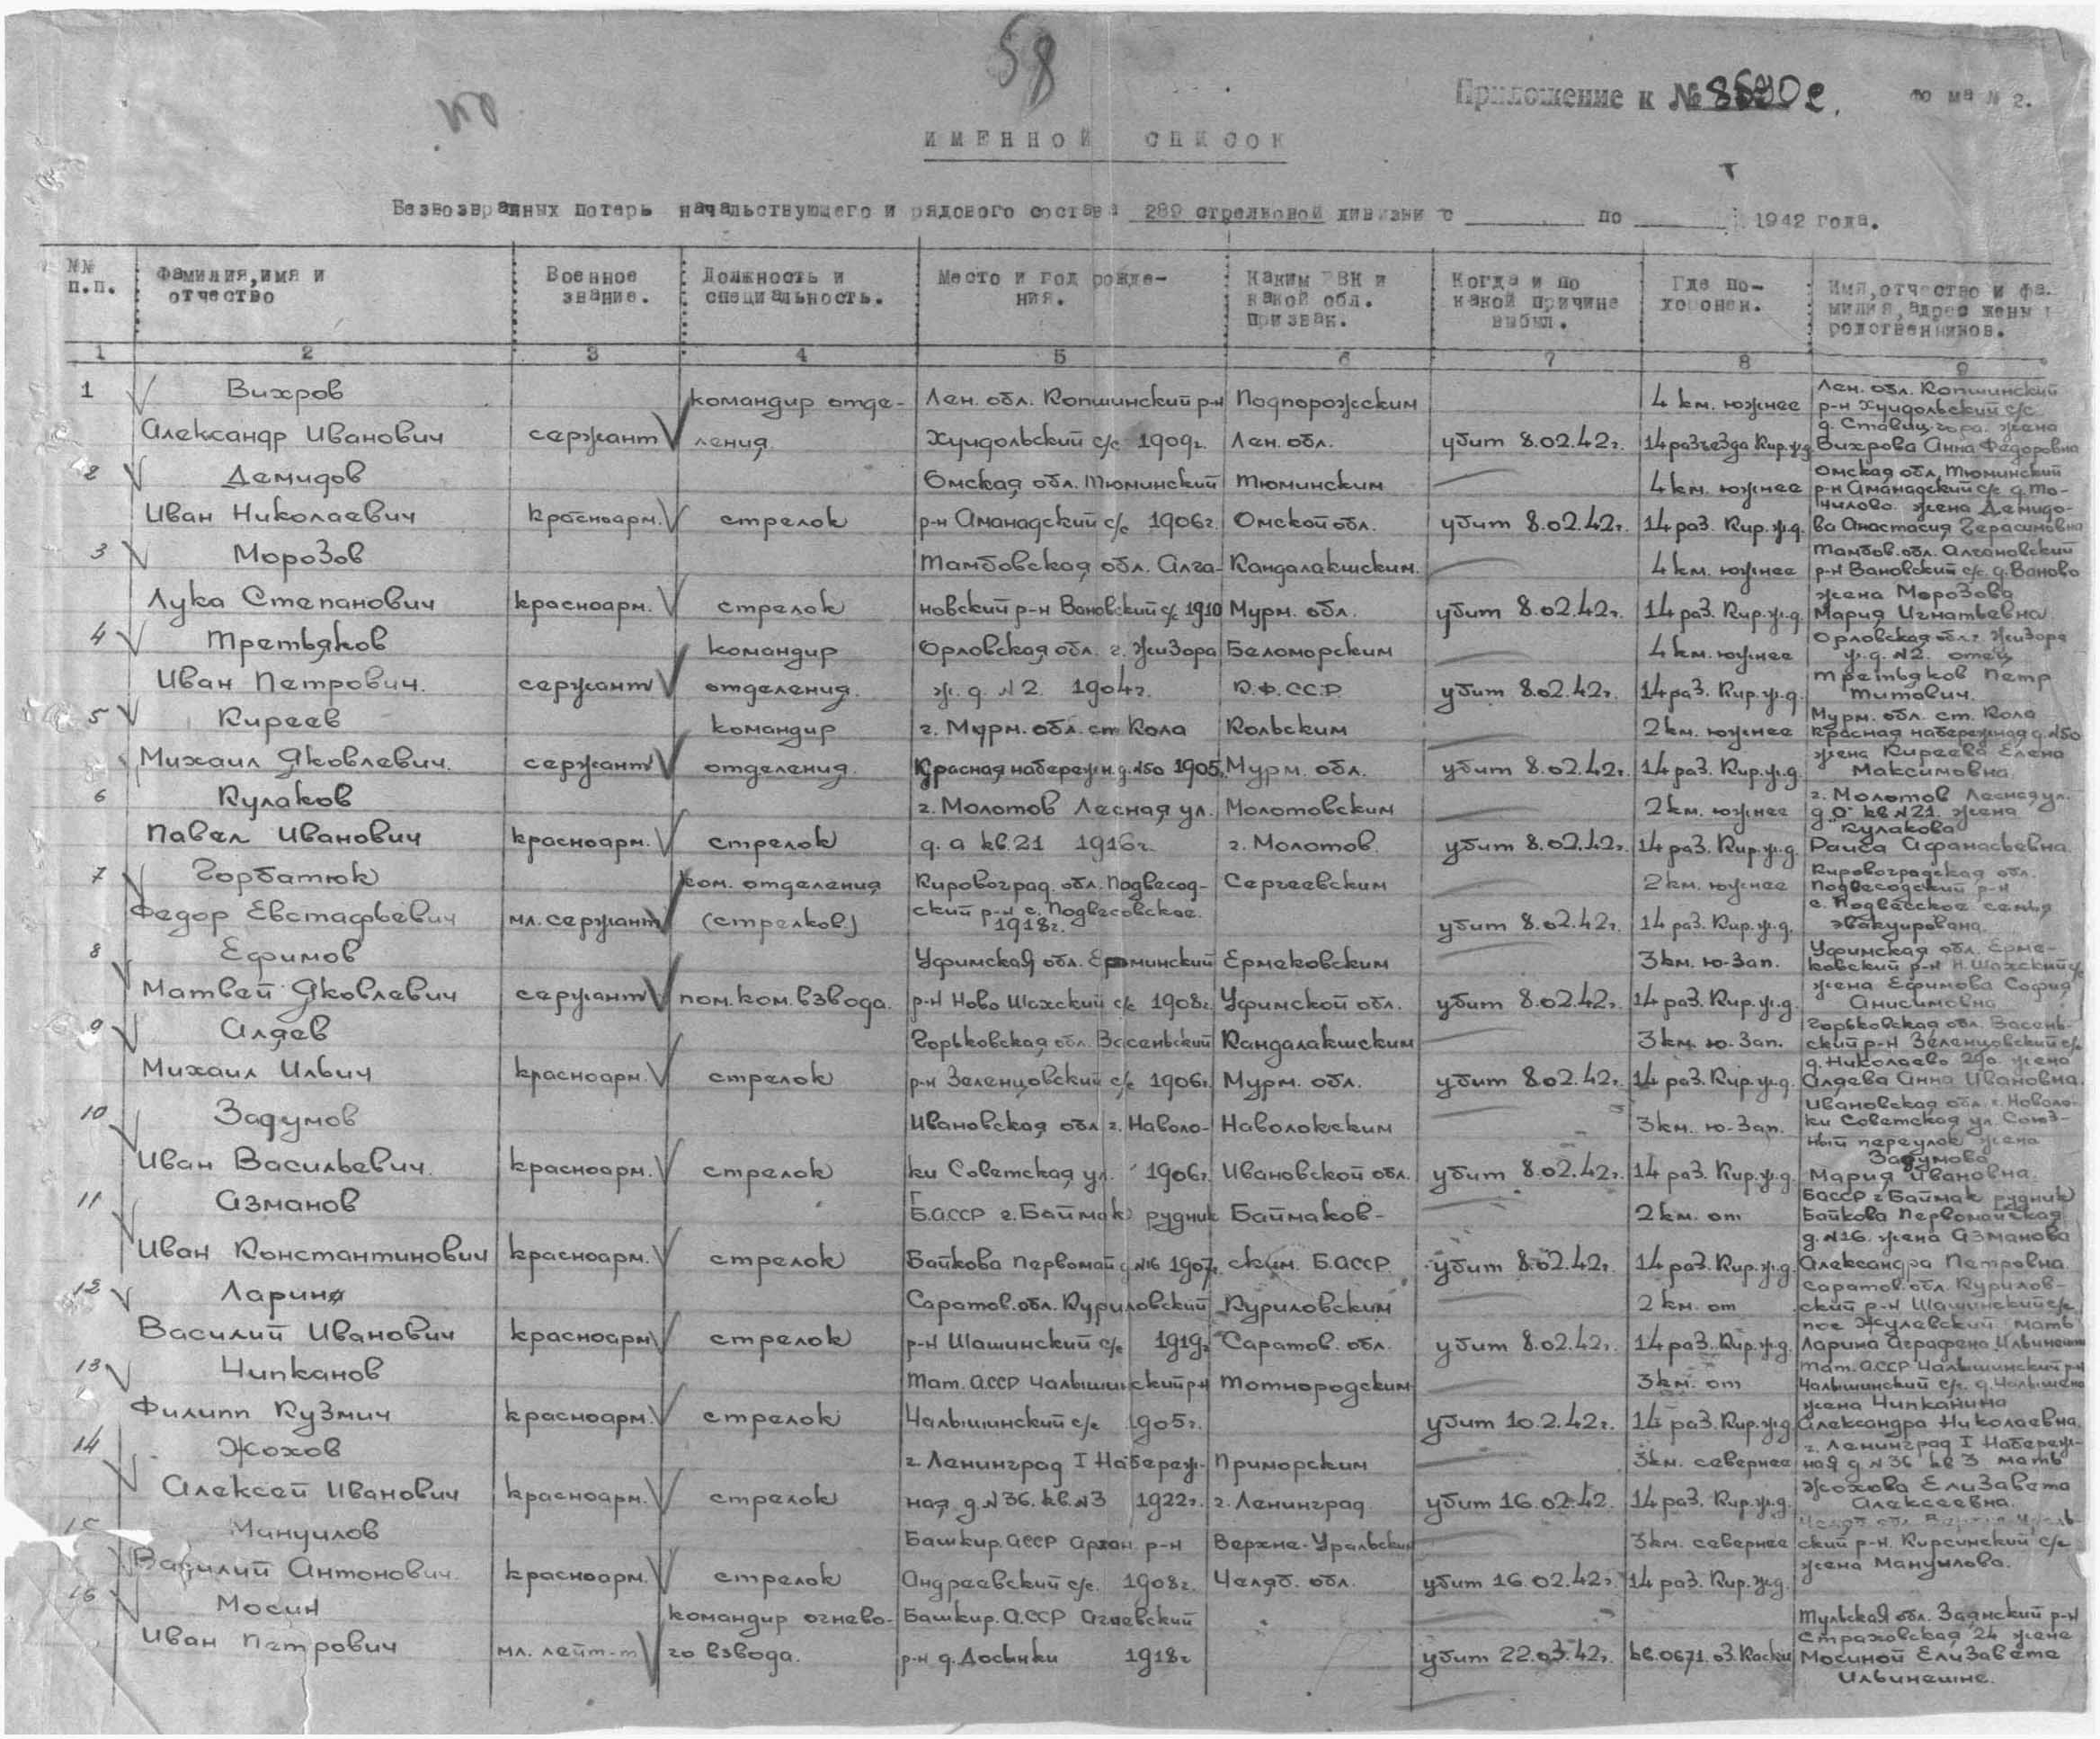 58
Приложение к № 8890 с.
Фо ма № 2.
ИМЕННОЙ СПИСОК
Безвозвратных потерь начальствующего и рядового состава 289 стрелковой дивизии с по 1942 года.
№№ п.п.
Фамилия, имя и отчество
Военное звание.
Должность и специальность.
Место и год рожде-ния.
Каким РВК и какой обл. призван.
Когда и по какой причине выбыл.
Где по-хоронен.
Имя, отчество и фа-милия, адрес жены и родственников.
1 2 3 4 5 6 7 8 9
1 Вихров командир отде- Лен. обл. Копшинский р-н Подпорожским 4 км. южнее Лен. обл. Копшинский
р-н Хундольский с/с
д. Ставиц. гора. жена
Александр Иванович сержант ления. Хундольский с/с 1909г. Лен. обл. убит 8.02.42г. 14 разъезда Кир.ж.д. Вихрова Анна Федоровна
2 Демидов Омская обл. Тюминский Тюминским 4 км. южнее Омская обл. Тюминский
р-н Аманадский с/с д. То-
чилово. жена Демидо-
Иван Николаевич красноарм. стрелок р-н Аманадский с/с 1906г. Омской обл. убит 8.02.42г. 14 раз. Кир. ж.д. ва Анастасия Герасимовна
3 Морозов Тамбовская обл. Алга- Кандалакшским. 4 км. южнее Тамбов. обл. Алгановский
р-н Вановский с/с. д. Ваново
жена Морозова
Лука Степанович красноарм. стрелок новский р-н Вановский с/с 1910 Мурм. обл. убит 8.02.42г. 14 раз. Кир. ж.д. Мария Игнатьевна
4 Третьяков командир Орловская обл. г. Жиздра Беломорским 4 км. южнее Орловская обл. г. Жиздра
ж.д. №2. отец
Третьяков Петр
Иван Петрович. сержант отделения. ж.д. №2. 1904г. К.Ф.ССР. убит 8.02.42г. 14 раз. Кир. ж.д. Титович.
5 Киреев командир г. Мурм. обл. ст. Кола Кольским 2 км. южнее Мурм. обл. ст. Кола
красная набережная д. №50
жена Киреева Елена
Михаил Яковлевич. сержант отделения. Красная набережн. д. №50 1905г. Мурм. обл. убит 8.02.42г. 14 раз. Кир. ж.д. Максимовна
6 Кулаков г. Молотов Лесная ул. Молотовским 2 км. южнее г. Молотов Лесная ул.
д. 0 кв №21. жена
Кулакова
Павел Иванович красноарм. стрелок д. 0 кв. 21 1916г. г. Молотов. убит 8.02.42г. 14 раз. Кир. ж.д. Раиса Афанасьевна.
7 Горбатюк ком. отделения Кировоград. обл. Подвесод- Сергеевским 2 км. южнее Кировоградская обл.
Подвесодский р-н
с. Подвесское семья
Федор Евстафьевич мл. сержант (стрелков.) ский р-н с. Подвесовское. 1918г. убит 8.02.42г. 14 раз. Кир. ж.д. эвакуирована.
8 Ефимов Уфимская обл. Ерминский Ермековским 3 км. ю-зап. Уфимская обл. Ерме-
ковский р-н Н. Шахский с/с
жена Ефимова София
Матвей Яковлевич сержант пом. ком. взвода. р-н Ново Шахский с/с 1908г. Уфимской обл. убит 8.02.42г. 14 раз. Кир. ж.д. Анисимовна
9 Аляев Горьковская обл. Васеньский Кандалакшским 3 км. ю-зап. Горьковская обл. Васень-
ский р-н Зеленцовский с/с
д. Николаево 290 жена
Михаил Ильич красноарм. стрелок р-н Зеленцовский с/с 1906г. Мурм. обл. убит 8.02.42г. 14 раз. Кир. ж.д. Аляева Анна Ивановна.
10 Задумов Ивановская обл г. Наволо- Наволокским 3 км. ю-зап. Ивановская обл. г. Наволо-
ки Советская ул. Союз-
ный переулок жена
Задумова
Иван Васильевич. красноарм. стрелок ки Советская ул. 1906г. Ивановской обл. убит 8.02.42г. 14 раз. Кир. ж.д. Мария Ивановна.
11 Азманов Б.АССР г. Баймак рудник Баймаков- 2 км. от БАССР г. Баймак рудник
Байкова Первомайская
д. №16. жена Азманова
Иван Константинович красноарм. стрелок Байкова Первомай д №16 1907г. ским. Б.АССР. убит 8.02.42г. 14 раз. Кир. ж.д. Александра Петровна.
12 Ларин Саратов. обл. Куриловский Куриловским 2 км. от Саратов. обл. Курилов-
ский р-н Шашинский с/с.
пос Жулевский мать
Василий Иванович красноарм. стрелок р-н Шашинский с/с 1919г Саратов. обл. убит 8.02.42г. 14 раз. Кир. ж.д. Ларина Аграфена Ильинешна
13 Чипканов Тат. АССР Чалышинский р-н Тотнородским 3 км. от Тат. АССР Чалышинский р-н
Чалышинский с/с. д. Чалышено
жена Чипканина
Филипп Кузмич красноарм. стрелок Чалышинский с/с 1905г. убит 10.2.42г. 14 раз. Кир. ж.д. Александра Николаевна.
14 Жохов г. Ленинград I Набереж- Приморским 3 км. севернее г. Ленинград I Набереж-
ная д №36 кв 3 мать
Жохова Елизавета
Алексей Иванович красноарм. стрелок ная д. №36. кв. №3 1922г. г. Ленинград. убит 16.02.42. 14 раз. Кир. ж.д. Алексеевна.
15 Мануилов Башкир. АССР Архан. р-н Верхне-Уральским 3 км. севернее
ский р-н. Кирсинский с/с
Василий Антонович. красноарм. стрелок Андреевский с/с. 1908г. Челяб. обл. убит 16.02.42г. 14 раз. Кир. ж.д. жена Мануилова.
16 Мосин командир огнево- Башкир. А.ССР Агиевский Тульская обл. Задиский р-н
Страховская 24 жене
Иван Петрович мл. лейт-т го взвода. р-н д. Досынки 1918г убит 22.03.42г. кв. 0671. оз. Каски Мосиной Елизавете
Ильинешне.